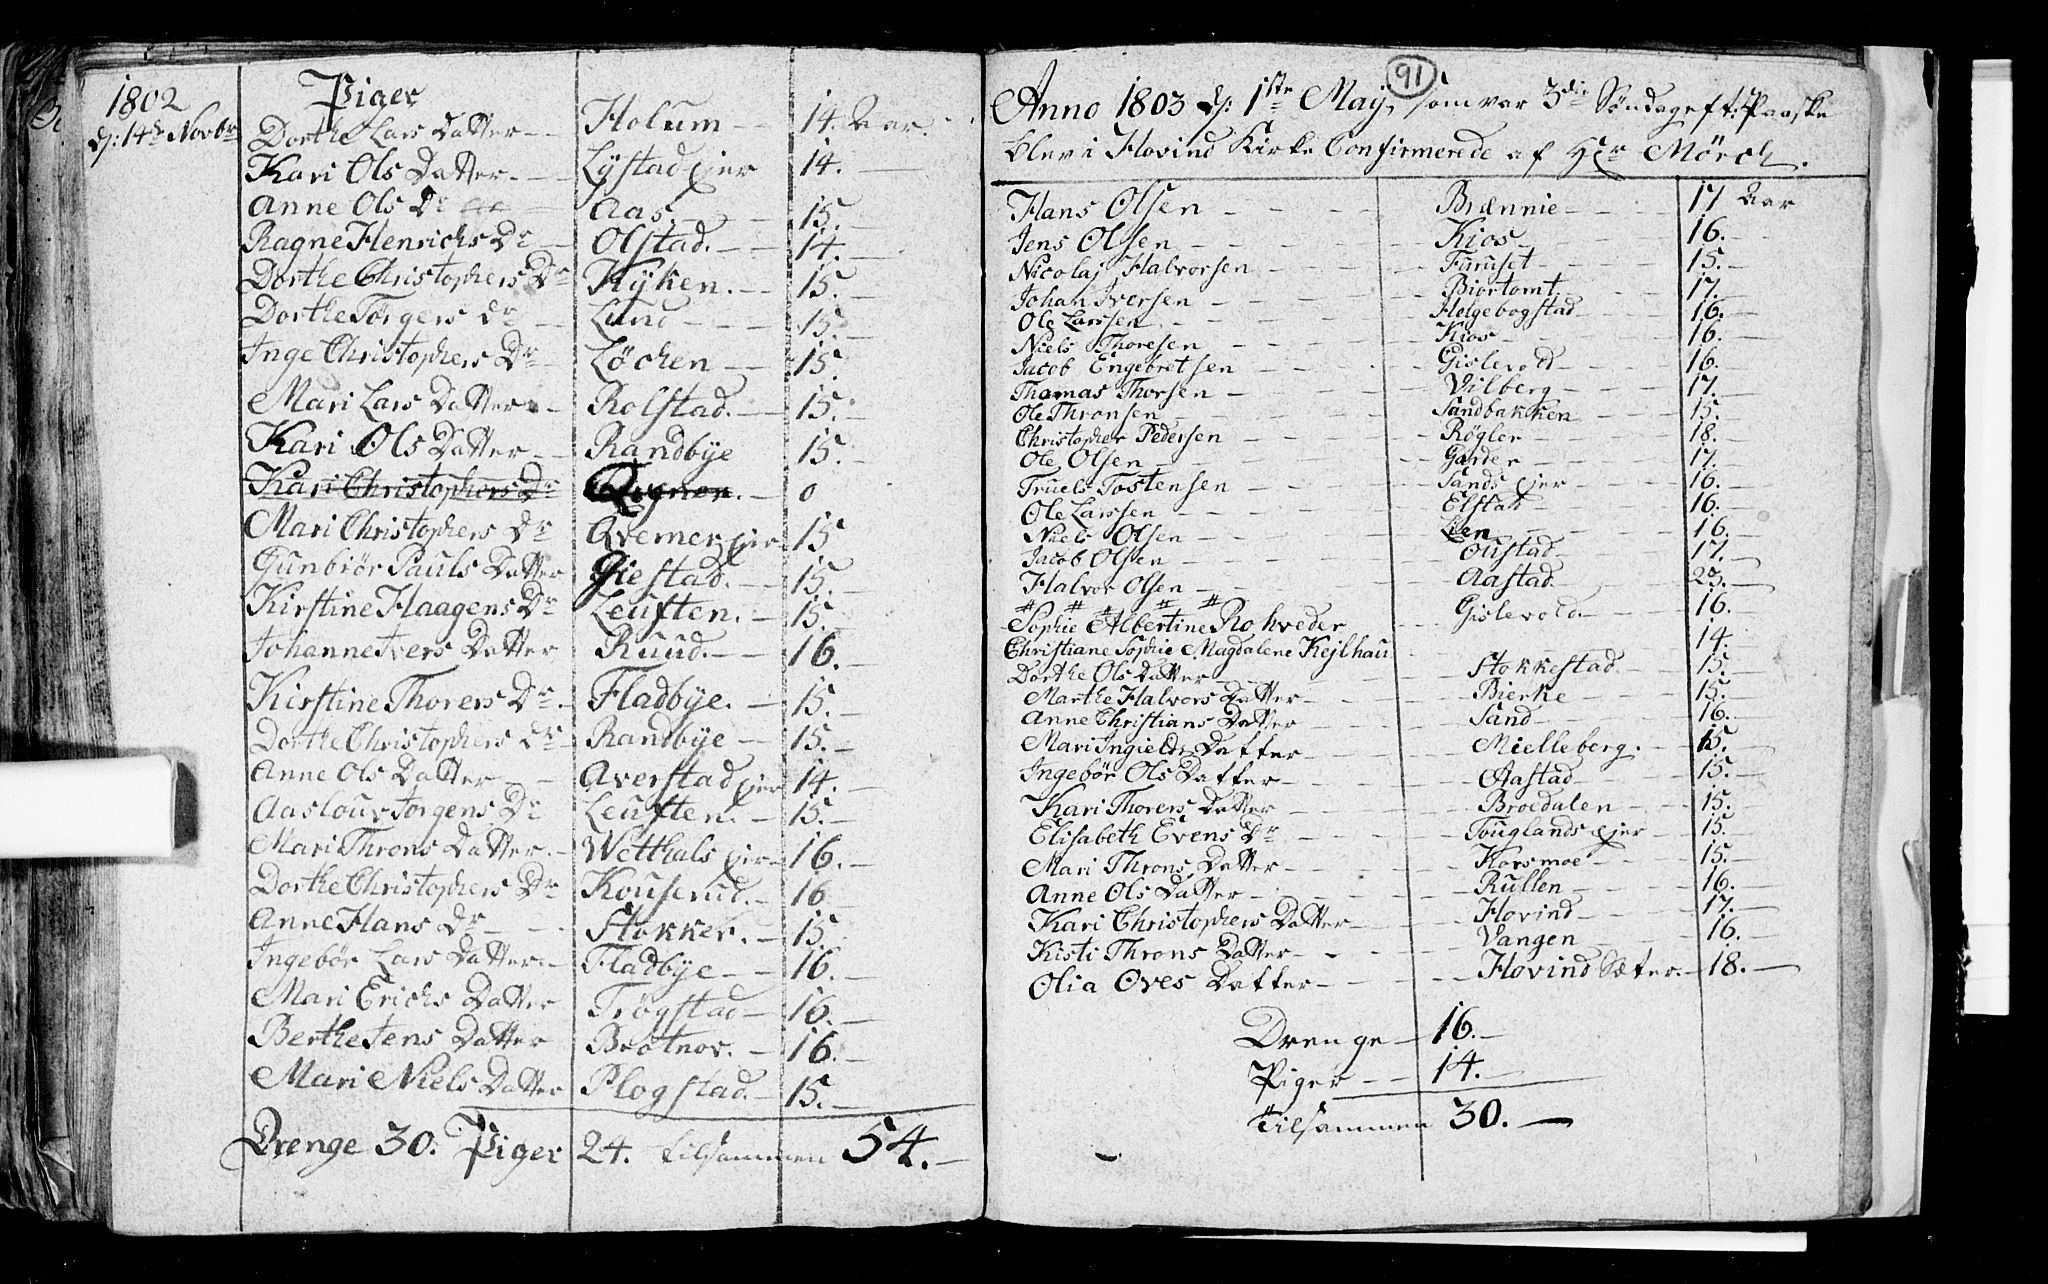 1802
d: 14de Novbr
Piger
Dorthe Lars Datter - - Holum - 14. Aar.
Kari Ols Datter. - Lystad ejer 14. -
Anne Ols Dr - Aas. - - 15. -
Ragne Henrichs Dr - Olstad. - - 14. -
Dorthe Christophers Dr Kyken. - 15. -
Dorthe Torgers dr - Lund - - - 15. -
Inge Christophers Dr - Löchen - - 15.
Mari Lars Datter - Rolstad. - 15. -
Kari Ols Datter - - Randbye 15. -
Kari Christophers Dr - 0
Mari Christophers Dr Qvemer ejer 15
Gunbiör Pauls Datter Giestad. - 15. -
Kirstine Haagens Dr Leuften. - 15. -
Johanne Ivers Datter Ruud. - - 16. -
Kirstine Thorers Dr. - Fladbye. - 15. -
Dorthe Christophers Dr - Randbye - 15. -
Anne Ols Datter - - Averstad ejer 14. -
Aaslouv Torgens Dr Leuften. - 15. -
Mari Throns Datter. - Wetthals ejer - 16. -
Dorthe Christophers Dr Kouserud. - 16 -
Anne Hans Dr - - Stokker. - 15
Ingebör Lars Datter. - Fladbye - - 16. -
Mari Erichs Datter Trögstad - 16. -
Berthe Jens Datter Brotnov. - 16. -
Mari Niels Datter Plogstad. - 15. -
Drenge 30. Piger 24. tilsammen 54. -
91
Anno 1803 d: 1ste May, som var 3die Söndag eft: Paaske
blev i Hovind Kirke Confirmerede af Hr Mörch.
Hans Olsen - - - Brænnie - - - 17 Aar
Jens Olsen - - - Kios - - - 16. -
Nicolaj Halvorsen - - - Furuset - - - 15. -
Johan Iversen - - - Biörtomt - - - 17. -
Ole Larssen - - - Helgebogstad - - - 16. -
Niels Thoresen - - - Kios - - - 16. -
Jacob Engebretsen - - - Gislevold - - - 16.
Thomas Thorsen - - - Vilberg - - - 17. -
Ole Thronsen - - - Sandbakken - - - 15. -
Christopher Pedersen - - - Røgler - - - 18. -
Ole Olsen - - - Garder - - - 17. -
Truels Tostensen - - - Sands ejer - - - 16. -
Ole Larssen - - - Elstad - - - 16. -
Niels Olsen - - - Lien - - - 16. -
Jacob Olsen - - - Oustad - - - 17. -
Halvor Olsen - - - Aastad - - - 23. -
# # # # #
Sophie Albertine Rohveder - - - Gislevold. - - - 16. -
Christiane Sophie Magdalene Kejlhau - - - 14. -
Dorthe Ols Datter - - - Stokkestad - - - 15. -
Marthe Halvors Datter - - - Bierke - - - 15. -
Anne Christians Datter - - - Sand - - - 16. -
Mari Ingields Datter - - - Mielleberg. - 15. -
Ingebör Ols Datter - - - Aastad - - - 15. -
Kari Thorers Datter - - - Broedalen - - - 15. -
Elisabeth Evens Dr - - - Touglands ejer - 15. -
Mari Throns Datter - - - Korsmoe - - - 15. -
Anne Ols Datter - - - Rullen - - - 16. -
Kari Christophers Datter - - - Hovind - - - 17. -
Kisti Throns Datter - - - Vangen - - - 16. -
Olia Oves Datter - - - Hovind Sæter. - 18. -
Drenge - 16. -
Piger - - 14. -
tilsammen 30. -